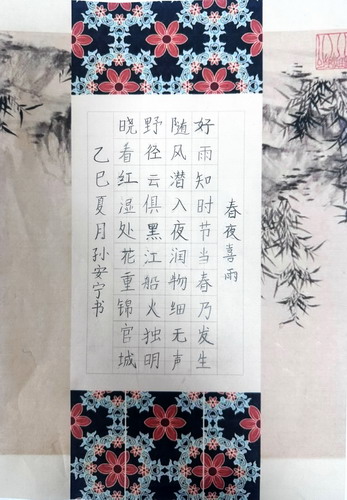 春夜喜雨
好雨知时节当春乃发生
随风潜入夜润物细无声
野径云俱黑江船火独明
晓看红湿处花重锦官城
乙巳夏月孙安宁书